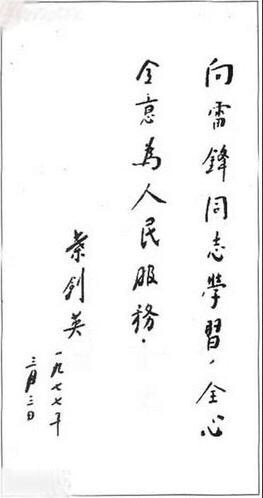 向雷鋒同志學習，全心
全意為人民服務．
葉剑英
一九七七年
三月二日